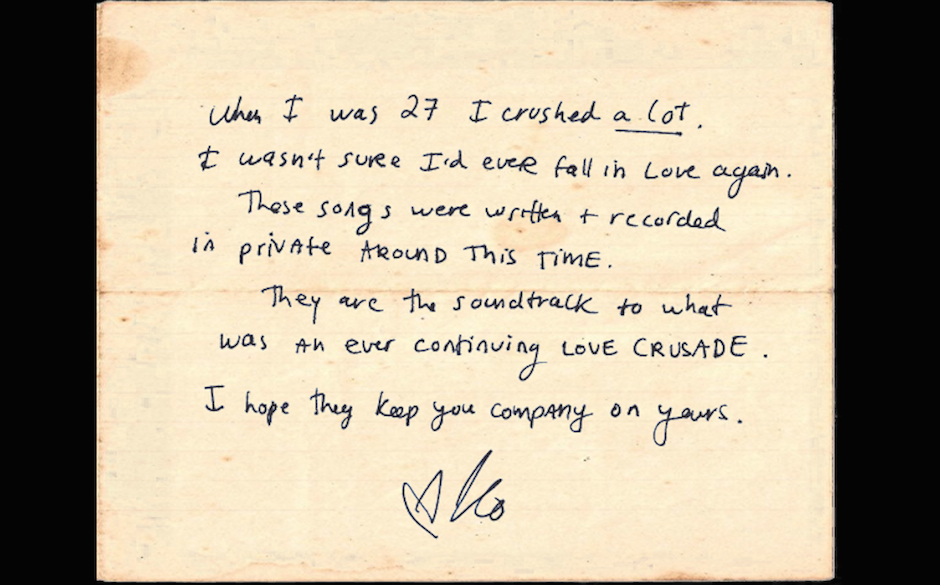 When I was 27 I crushed a lot.
I wasn't sure I'd ever fall in love again.
These songs were written + recorded
in private AROUND THIS TIME.
They are the soundtrack to what
was AN ever continuing LOVE CRUSADE.
I hope they keep you company on yours.
KO